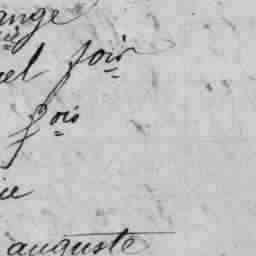 ange
el fois
fois
ie
auguste